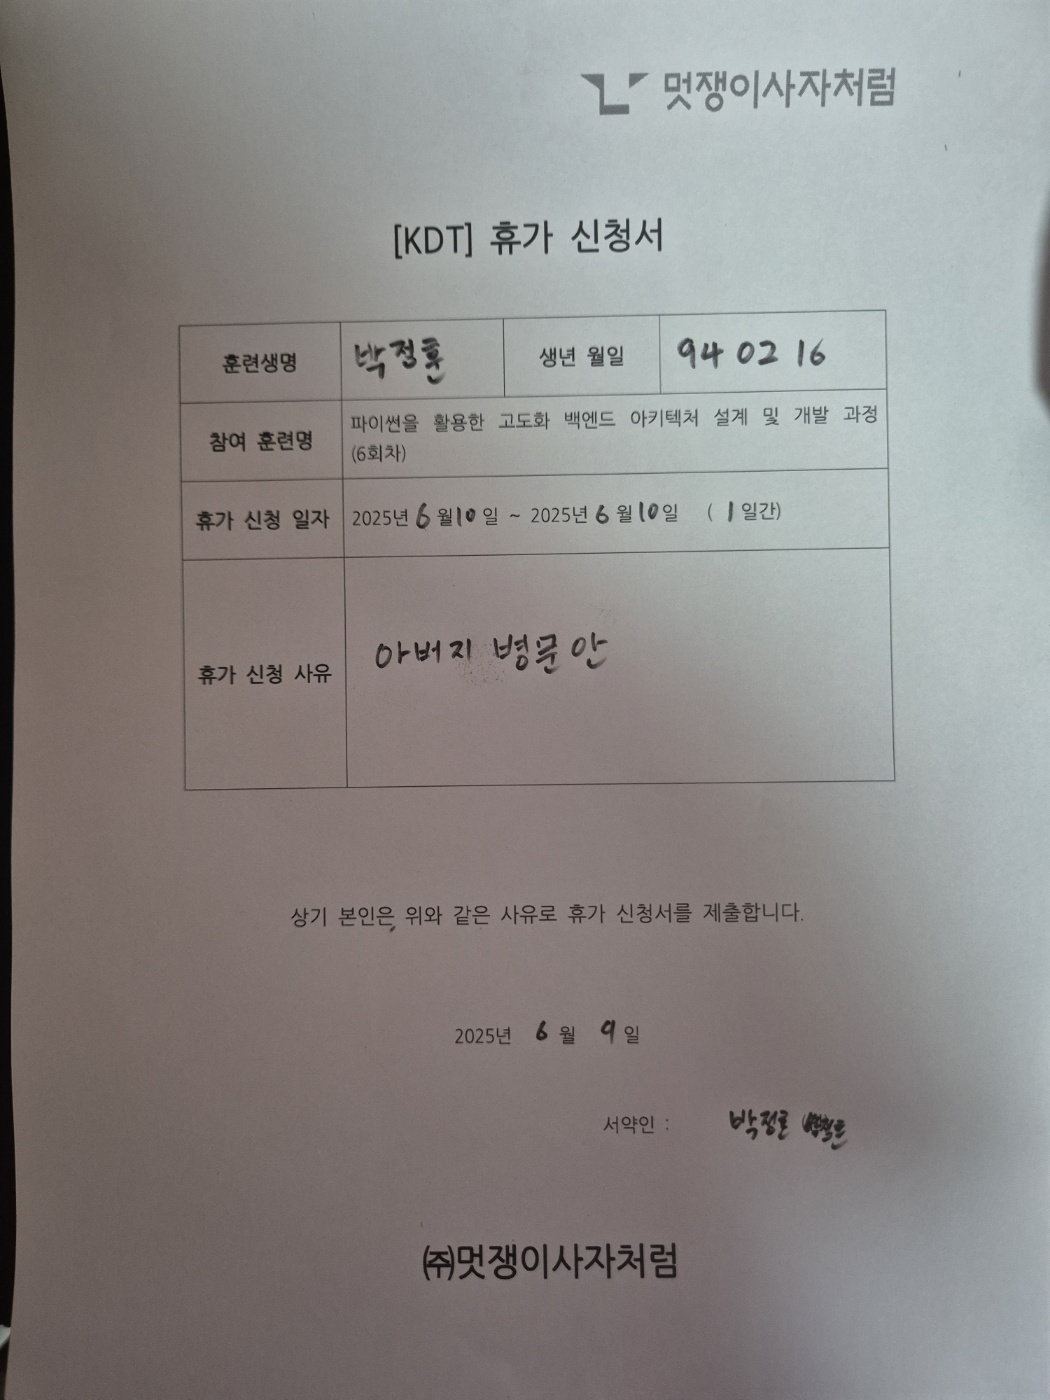 멋쟁이사자처럼
[KDT] 휴가 신청서
훈련생명 박정훈 생년 월일 94 02 16
참여 훈련명 파이썬을 활용한 고도화 백엔드 아키텍처 설계 및 개발 과정
(6회차)
휴가 신청 일자 2025년 6월 10일 ~ 2025년 6월 10일 ( 1일간)
휴가 신청 사유 아버지 병문안
상기 본인은, 위와 같은 사유로 휴가 신청서를 제출합니다.
2025년 6월 9일
서약인 : 박정훈
㈜멋쟁이사자처럼